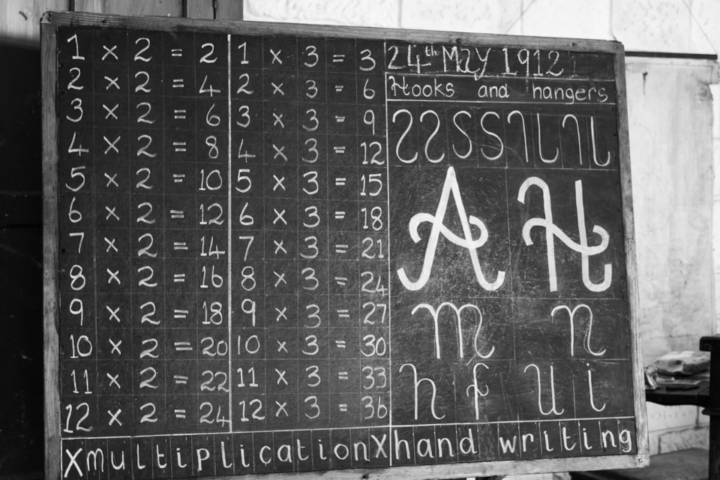 1 x 2 = 2
2 x 2 = 4
3 x 2 = 6
4 x 2 = 8
5 x 2 = 10
6 x 2 = 12
7 x 2 = 14
8 x 2 = 16
9 x 2 = 18
10 x 2 = 20
11 x 2 = 22
12 x 2 = 24
1 x 3 = 3
2 x 3 = 6
3 x 3 = 9
4 x 3 = 12
5 x 3 = 15
6 x 3 = 18
7 x 3 = 21
8 x 3 = 24
9 x 3 = 27
10 x 3 = 30
11 x 3 = 33
12 x 3 = 36
24th May 1912
Hooks and hangers
A H
m n
h f u i
X multiplication X hand writing